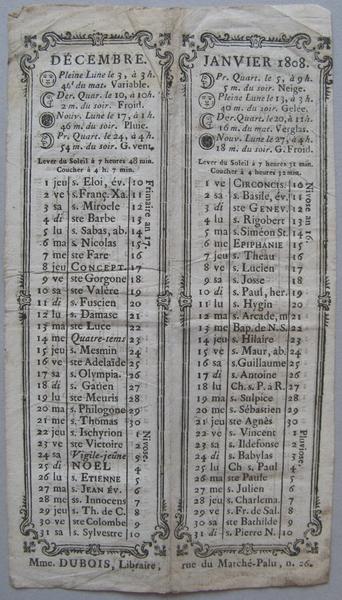 DÉCEMBRE.
Pleine Lune le 3, à 3 h.
46' du mat. Variable.
Der. Quar. le 10, à 10 h.
2 m. du soir. Froid.
Nouv. Lune le 17, à 1 h.
46 m. du soir. Pluie.
Pr. Quart. le 24, à 4 h.
54 m. du soir. G. vent.
Lever du Soleil à 7 heures 48 min.
Coucher à 4 h. 7 min.
1 jeu s. Eloi, év. 10
2 ve s. Franç. Xa. 11
3 sa s. Mirocle 12
4 di ste Barbe 13
5 lu s. Sabas, ab. 14
6 ma s. Nicolas 15
7 me ste Fare 16
8 jeu CONCEPT. 17
9 ve ste Gorgone 18
10 sa ste Valère 19
11 di s. Fuscien 20
12 lu s. Damase 21
13 ma ste Luce 22
14 me Quatre-tems 23
15 jeu s. Mesmin 24
16 ve ste Adelaïde 25
17 sa s. Olympia. 26
18 di s. Gatien 27
19 lu ste Meuris 28
20 ma s. Philogone 29
21 me s. Thomas 30
22 jeu s. Ischyrion 1
23 ve ste Victoire 2
24 sa Vigile-jeûne 3
25 di NOEL 4
26 lu s. ETIENNE 5
27 ma s. JEAN ÉV. 6
28 me ss. Innocens 7
29 jeu s. Th. de C. 8
30 ve ste Colombe 9
31 sa s. Sylvestre 10
Frimaire an 17.
Nivose.
JANVIER 1808.
Pr. Quart. le 5, à 9 h.
5 m. du soir. Neige.
Pleine Lune le 13, à 3 h.
40 m. du soir. Gelée.
Der. Quart. le 20, à 11 h.
16 m. du mat. Verglas.
Nouv. Lune le 27, à 4 h.
18 m. du soir. G. Froid.
Lever du Soleil à 7 heures 51 min.
Coucher à 4 heures 32 min.
1 ve CIRCONCIS. 10
2 sa s. Basile, év. 11
3 di ste GENEV. 12
4 lu s. Rigobert 13
5 ma s. Siméon St. 14
6 me EPIPHANIE 15
7 jeu s. Theau 16
8 ve s. Lucien 17
9 sa s. Josse 18
10 di s. Paul, her. 19
11 lu s. Hygin 20
12 ma s. Arcade, m 21
13 me Bap. de N. S. 22
14 jeu s. Hilaire 23
15 ve s. Maur, ab. 24
16 sa s. Guillaume 25
17 di s. Antoine 26
18 lu Ch. s. P. à R. 27
19 ma s. Sulpice 28
20 me s. Sébastien 29
21 jeu ste Agnès 30
22 ve s. Vincent 1
23 sa s. Ildefonse 2
24 di s. Babylas 3
25 lu Ch s. Paul 4
26 ma ste Paule 5
27 me s. Julien 6
28 jeu s. Charlema. 7
29 ve s. Fr. de Sal. 8
30 sa ste Bathilde 9
31 di s. Pierre N. 10
Nivose an 16.
Pluviose.
Mme. DUBOIS, Libraire, rue du Marché-Palu, n. 26.